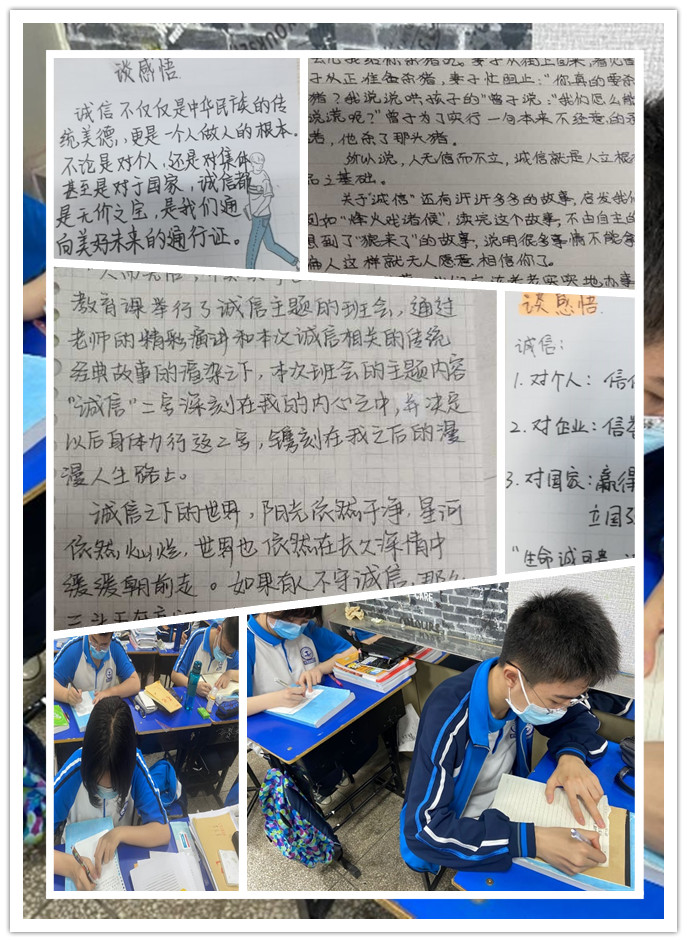 谈感悟
诚信不仅仅是中华民族的传
统美德,更是一个人做人的根本。
不论是对个人,还是对集体
甚至是对于国家,诚信都
是无价之宝,是我们通
向美好未来的通行证。
子从正准备杀猪,妻子忙阻止:“你真的要杀
猪?我说说哄孩子的”曾子说:“我们怎么能
说谎呢?”曾子为了实行一句本来不经意的承
诺,他杀了那头猪。
所以说,人无信而不立,诚信就是人立根
品之基础。
关于“诚信”还有许许多多的故事,启发我们
例如“烽火戏诸侯”,读完这个故事,不由自主的
想到了“狼来了”的故事,说明很多事情不能拿
骗人这样就无人愿意相信你了。
教育课举行了诚信主题的班会,通过
老师的精彩演讲和本次诚信相关的传统
经典故事的渲染之下,本次班会的主题内容
“诚信”二字深刻在我的内心之中,并决定
以后身体力行这二字,镌刻在我之后的漫
漫人生路上。
诚信之下的世界,阳光依然干净,星河
依然灿烂,世界也依然在长久深情中
缓缓朝前走。如果有人不守诚信,那么
谈感悟
诚信:
1.对个人:信
2.对企业:信誉
3.对国家:赢得
立国
“生命诚可贵